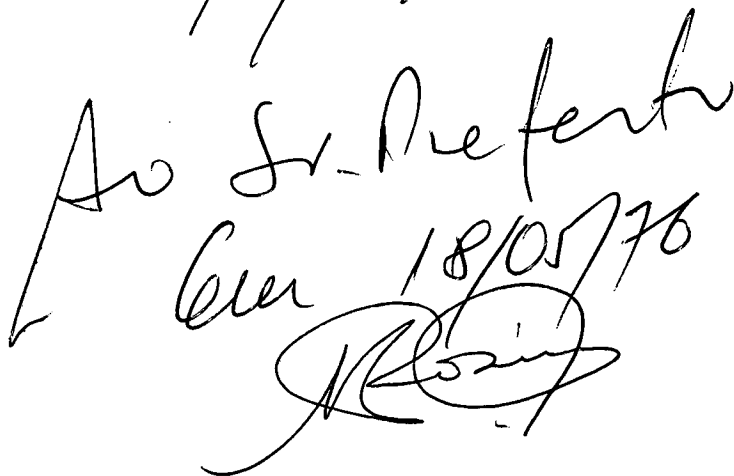 Ao Sr. Prefeito
Em 18/05/76